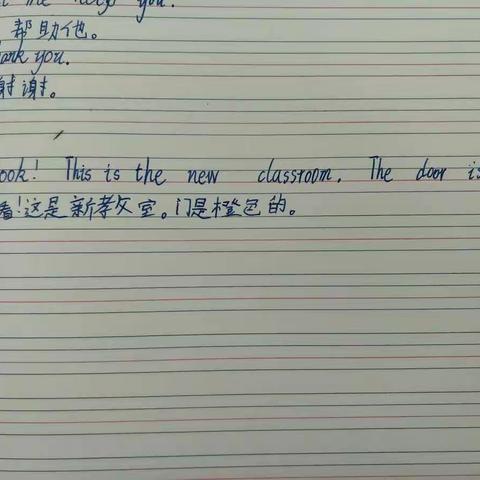 me help you.
帮助他。
ank you.
谢谢。
ook! This is the new classroom. The door is
看!这是新教室。门是橙色的。